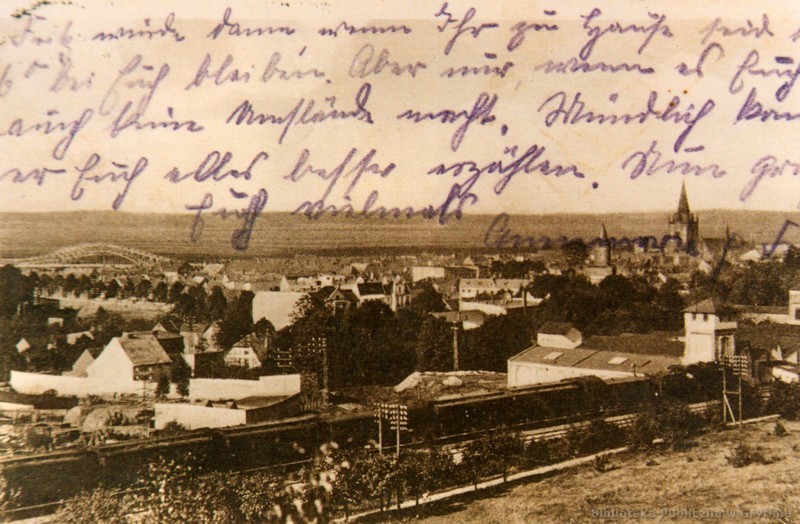 Zeit würde dann, wenn Ihr zu Hause seid
bei Euch bleiben. Aber nur, wenn es Euch
auch keine Umstände macht. Mündlich kann
er Euch alles besser erzählen. Nun
Euch vielmals
Annemarie
Biblioteka Publiczna w Gryfinie